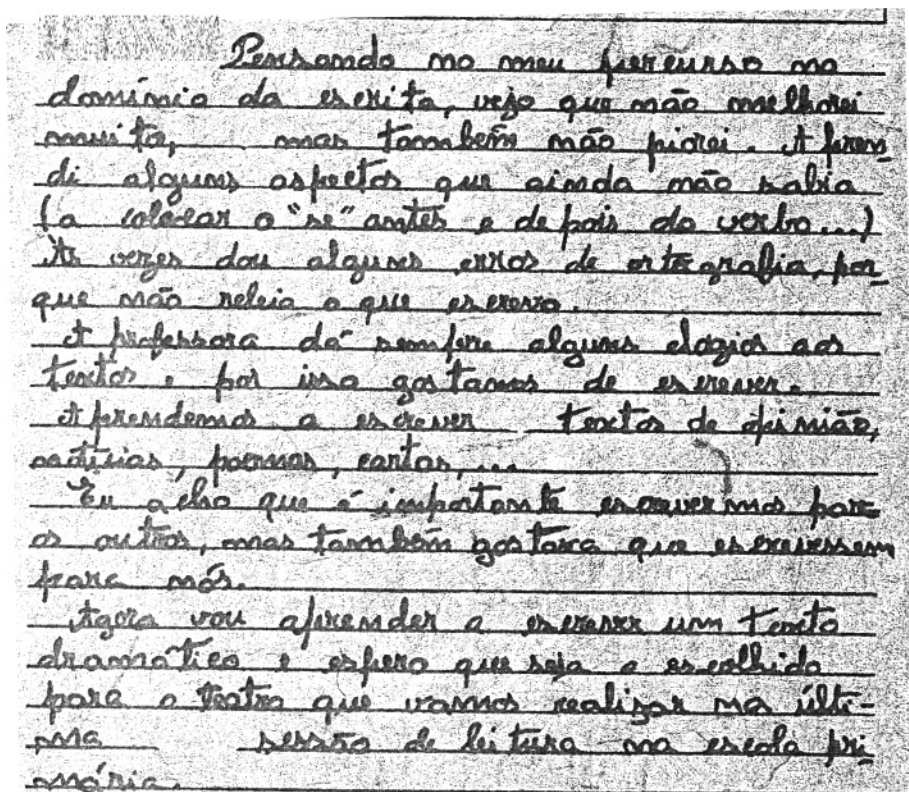 Pensando no meu percurso no
domínio da escrita, vejo que não melhorei
muito, mas também não piorei. Apren
di alguns aspectos que ainda não sabia
(a colocar o "se" antes e depois do verbo...)
Às vezes dou alguns erros de ortografia, por
que não releio o que escrevo.
A professora dá sempre alguns elogios aos
textos e por isso gostamos de escrever.
Aprendemos a escrever textos de opinião,
notícias, poemas, cartas,...
Eu acho que é importante escrevermos para
os outros, mas também gostava que escrevessem
para nós.
Agora vou aprender a escrever um texto
dramático e espero que seja o escolhido
para o teatro que vamos realizar na últi-
ma sessão de leitura na escola pri
mária.